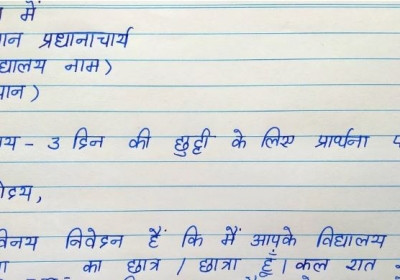 में
मान प्रधानाचार्य
द्यालय नाम)
थान)
षय - 3 दिन की छुट्टी के लिए प्रार्थना प
ोदय,
विनय निवेदन हैं कि मैं आपके विद्यालय
का छात्र / छात्रा हूँ। कल रात